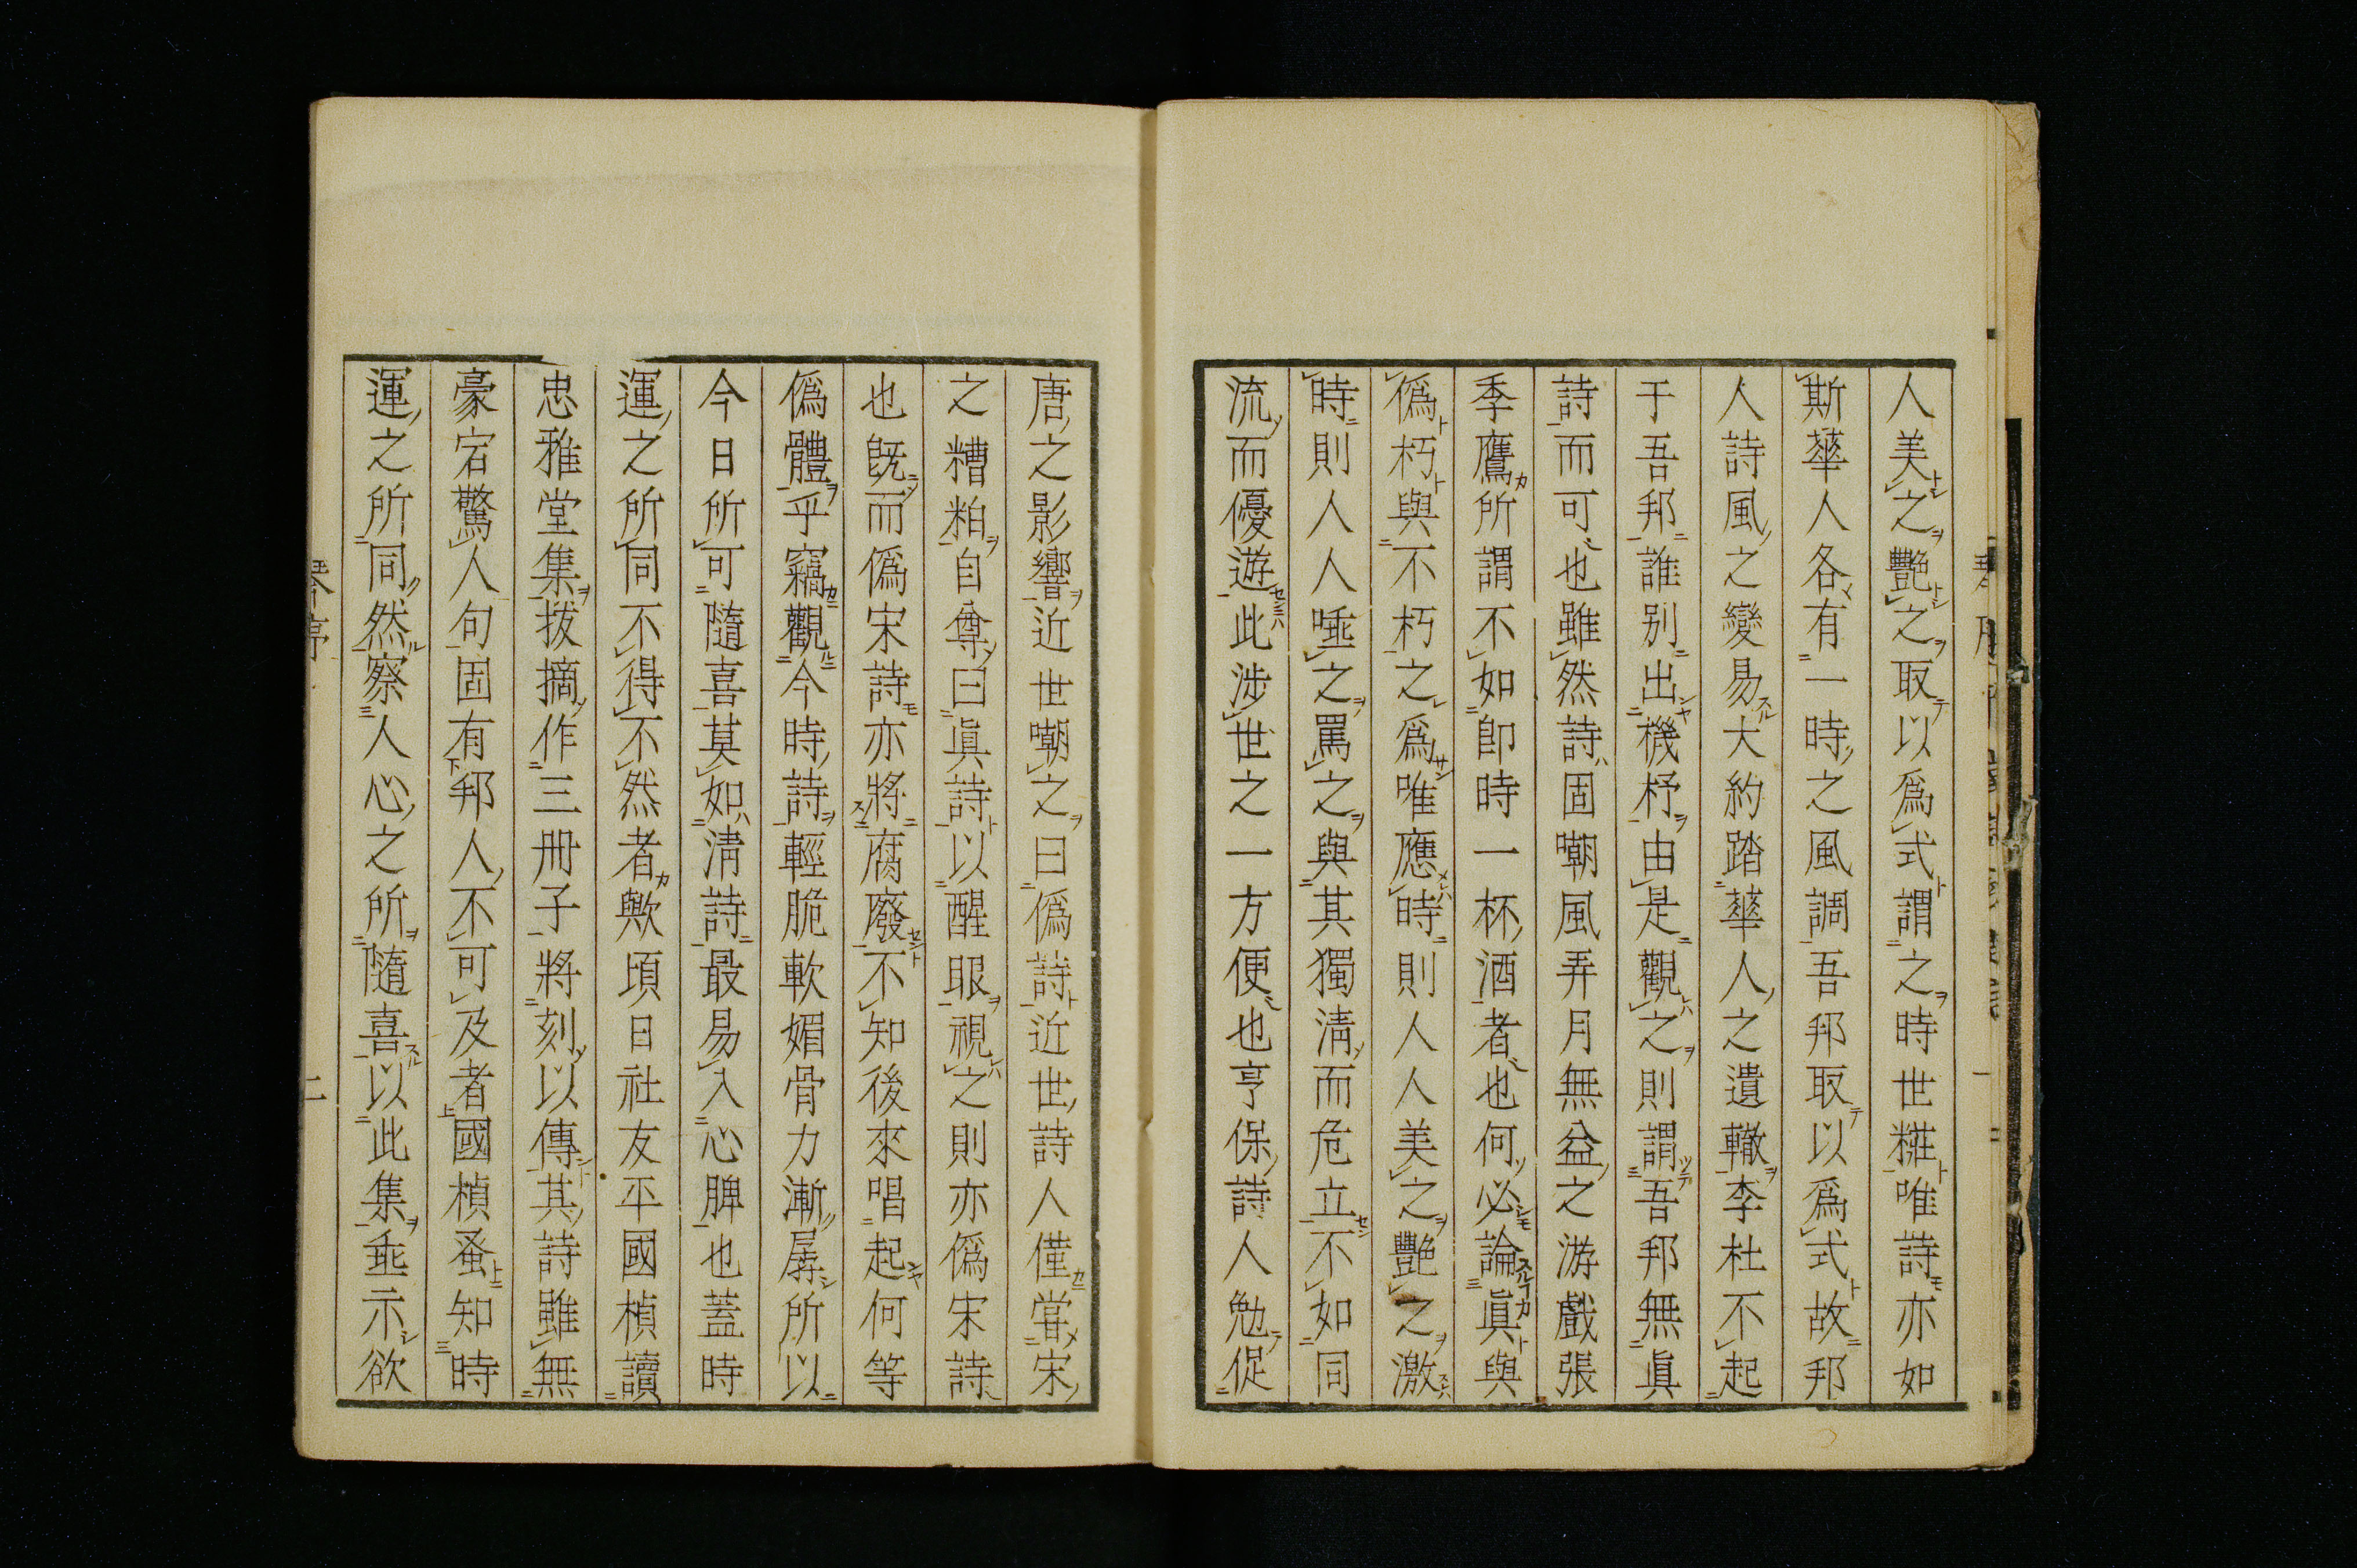 人美之艷之取以爲式謂之時世糚唯詩亦如
斯華人各有一時之風調吾邦取以爲式故邦
人詩風之變易大約踏華人之遺轍李杜不起
于吾邦誰别出機杼由是觀之則謂吾邦無眞
詩而可也雖然詩固嘲風弄月無益之游戲張
季鷹所謂不如卽時一杯酒者也何必論眞與
僞朽與不朽之爲唯應時則人人美之艷之激
時則人人唾之罵之與其獨淸而危立不如同
流而優遊此涉世之一方便也亨保詩人勉促
唐之影響近世嘲之曰僞詩近世詩人僅當宋
之糟粕自尊曰眞詩以醒眼視之則亦僞宋詩
也旣而僞宋詩亦將腐廢不知後來唱起何等
僞體乎竊觀今時詩輕脆軟媚骨力漸孱所以
今日所可隨喜莫如淸詩最易入心脾也蓋時
運之所同不得不然者歟頃日社友平國楨讀
忠雅堂集拔摘作三冊子將刻以傳其詩雖無
豪宕驚人句固有邦人不可及者國楨蚤知時
運之所同然察人心之所隨喜以此集垂示欲
二